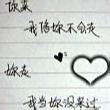 妳來
我陪妳不会走
妳走
我当妳没来过